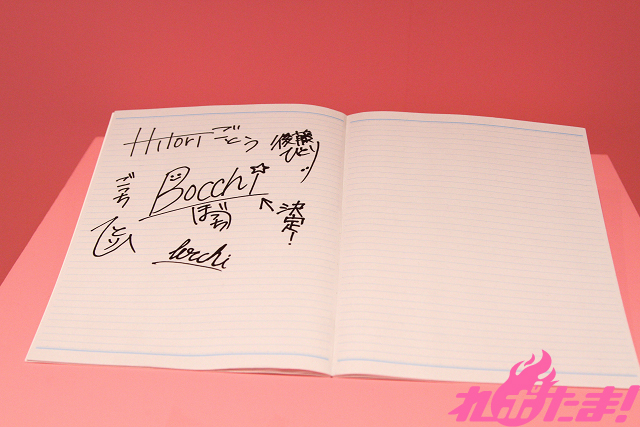 Hitoriごとう
後藤ひとり
ごっち
Bocchi☆
ぼっち
決定!
ひとり
bocchi
れポたま!